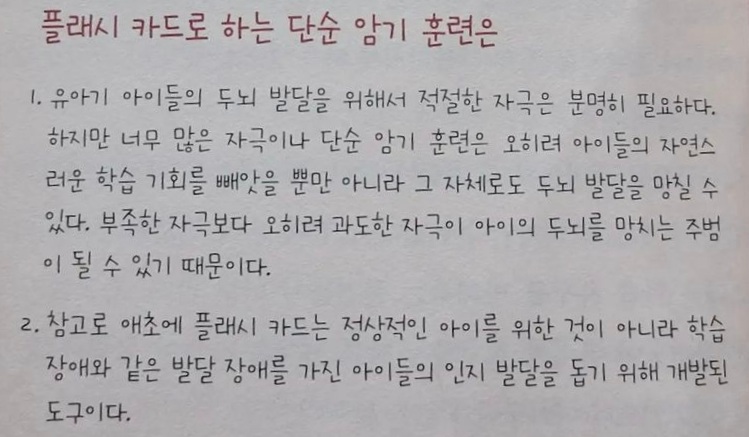 플래시 카드로 하는 단순 암기 훈련은
1. 유아기 아이들의 두뇌 발달을 위해서 적절한 자극은 분명히 필요하다.
하지만 너무 많은 자극이나 단순 암기 훈련은 오히려 아이들의 자연스
러운 학습 기회를 빼앗을 뿐만 아니라 그 자체로도 두뇌 발달을 망칠 수
있다. 부족한 자극보다 오히려 과도한 자극이 아이의 두뇌를 망치는 주범
이 될 수 있기 때문이다.
2. 참고로 애초에 플래시 카드는 정상적인 아이를 위한 것이 아니라 학습
장애와 같은 발달 장애를 가진 아이들의 인지 발달을 돕기 위해 개발된
도구이다.